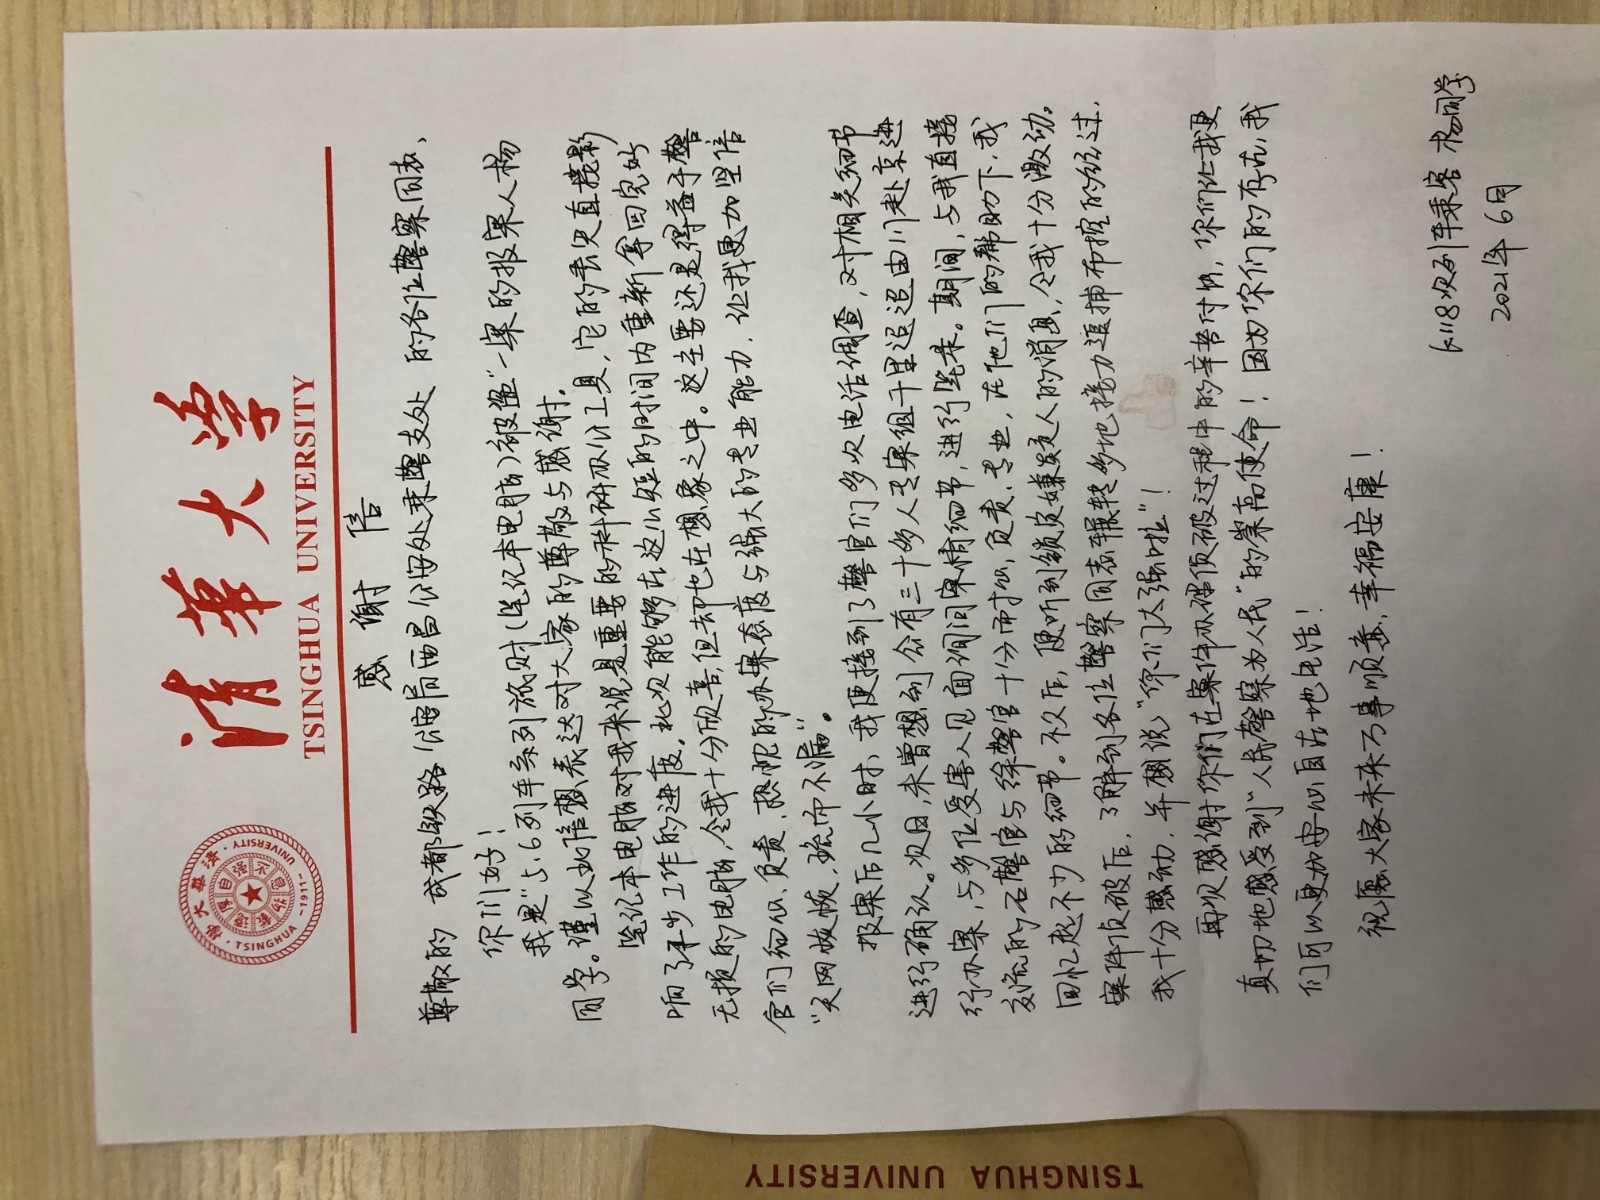 清華大學
TSINGHUA UNIVERSITY
清華大學
·TSINGHUA UNIVERSITY·
自强不息
厚德載物
-1911-
感谢信
尊敬的 成都铁路公安局西昌公安处乘警支处 的各位警察同志、
你们好！
我是"5.6列车系列旅财(笔记本电脑)被盗"一案的报案人杨
同学。谨以此信想表达对大家的尊敬与感谢.
笔记本电脑对我来说是重要的科研办公工具，它的丢失直接影
响了本步工作的进度。此次能够在这么短的时间内重新拿回完好
无损的电脑，令我十分欣喜，但却也在想象之中。这主要还是得益于警
官们细心、负责、热忱的办案态度与强大的专业能力，让我更加坚信
"天网恢恢，疏而不漏"。
报案后几小时，我便接到了警官们多次电话调查，对相关细节
进行确认。次日，未曾想到会有三十多人专案组千里迢迢由川赴京进
行办案，与多位受害人见面询问案情细节，进行笔录。期间，与我直接
交流的石警官与徐警官十分耐心，负责，专业，在他们的帮助下，我
回忆起不少的细节。不久后，便听到锁定嫌疑人的消息，令我十分激动。
案件侦破后，了解到各位警察同志辗转多地接力追捕布控的经过，
我十分感动，并想说"你们太强啦"！
再次感谢你们在案件办理侦破过程中的辛苦付出，你们让我更
真切地感受到"人民警察为人民"的崇高使命！因为你们的存在，我
们可以更加安心自在地生活！
祝愿大家未来万事顺意，幸福安康！
K118次列车乘客 杨同学
2021年 6月
TSINGHUA UNIVERSITY